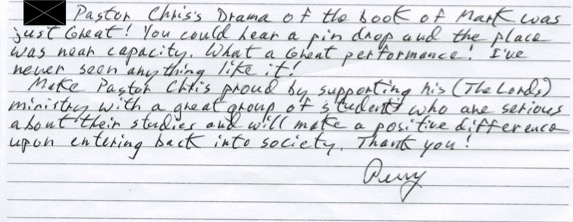 Pastor Chris's Drama of the book of Mark was
just Great! You could hear a pin drop and the place
was near capacity. What a Great performance! I've
never seen anything like it!
Make Pastor Chris proud by supporting his (The Lords)
ministry with a great group of students who are serious
about their studies and will make a positive difference
upon entering back into society. Thank you!
Perry